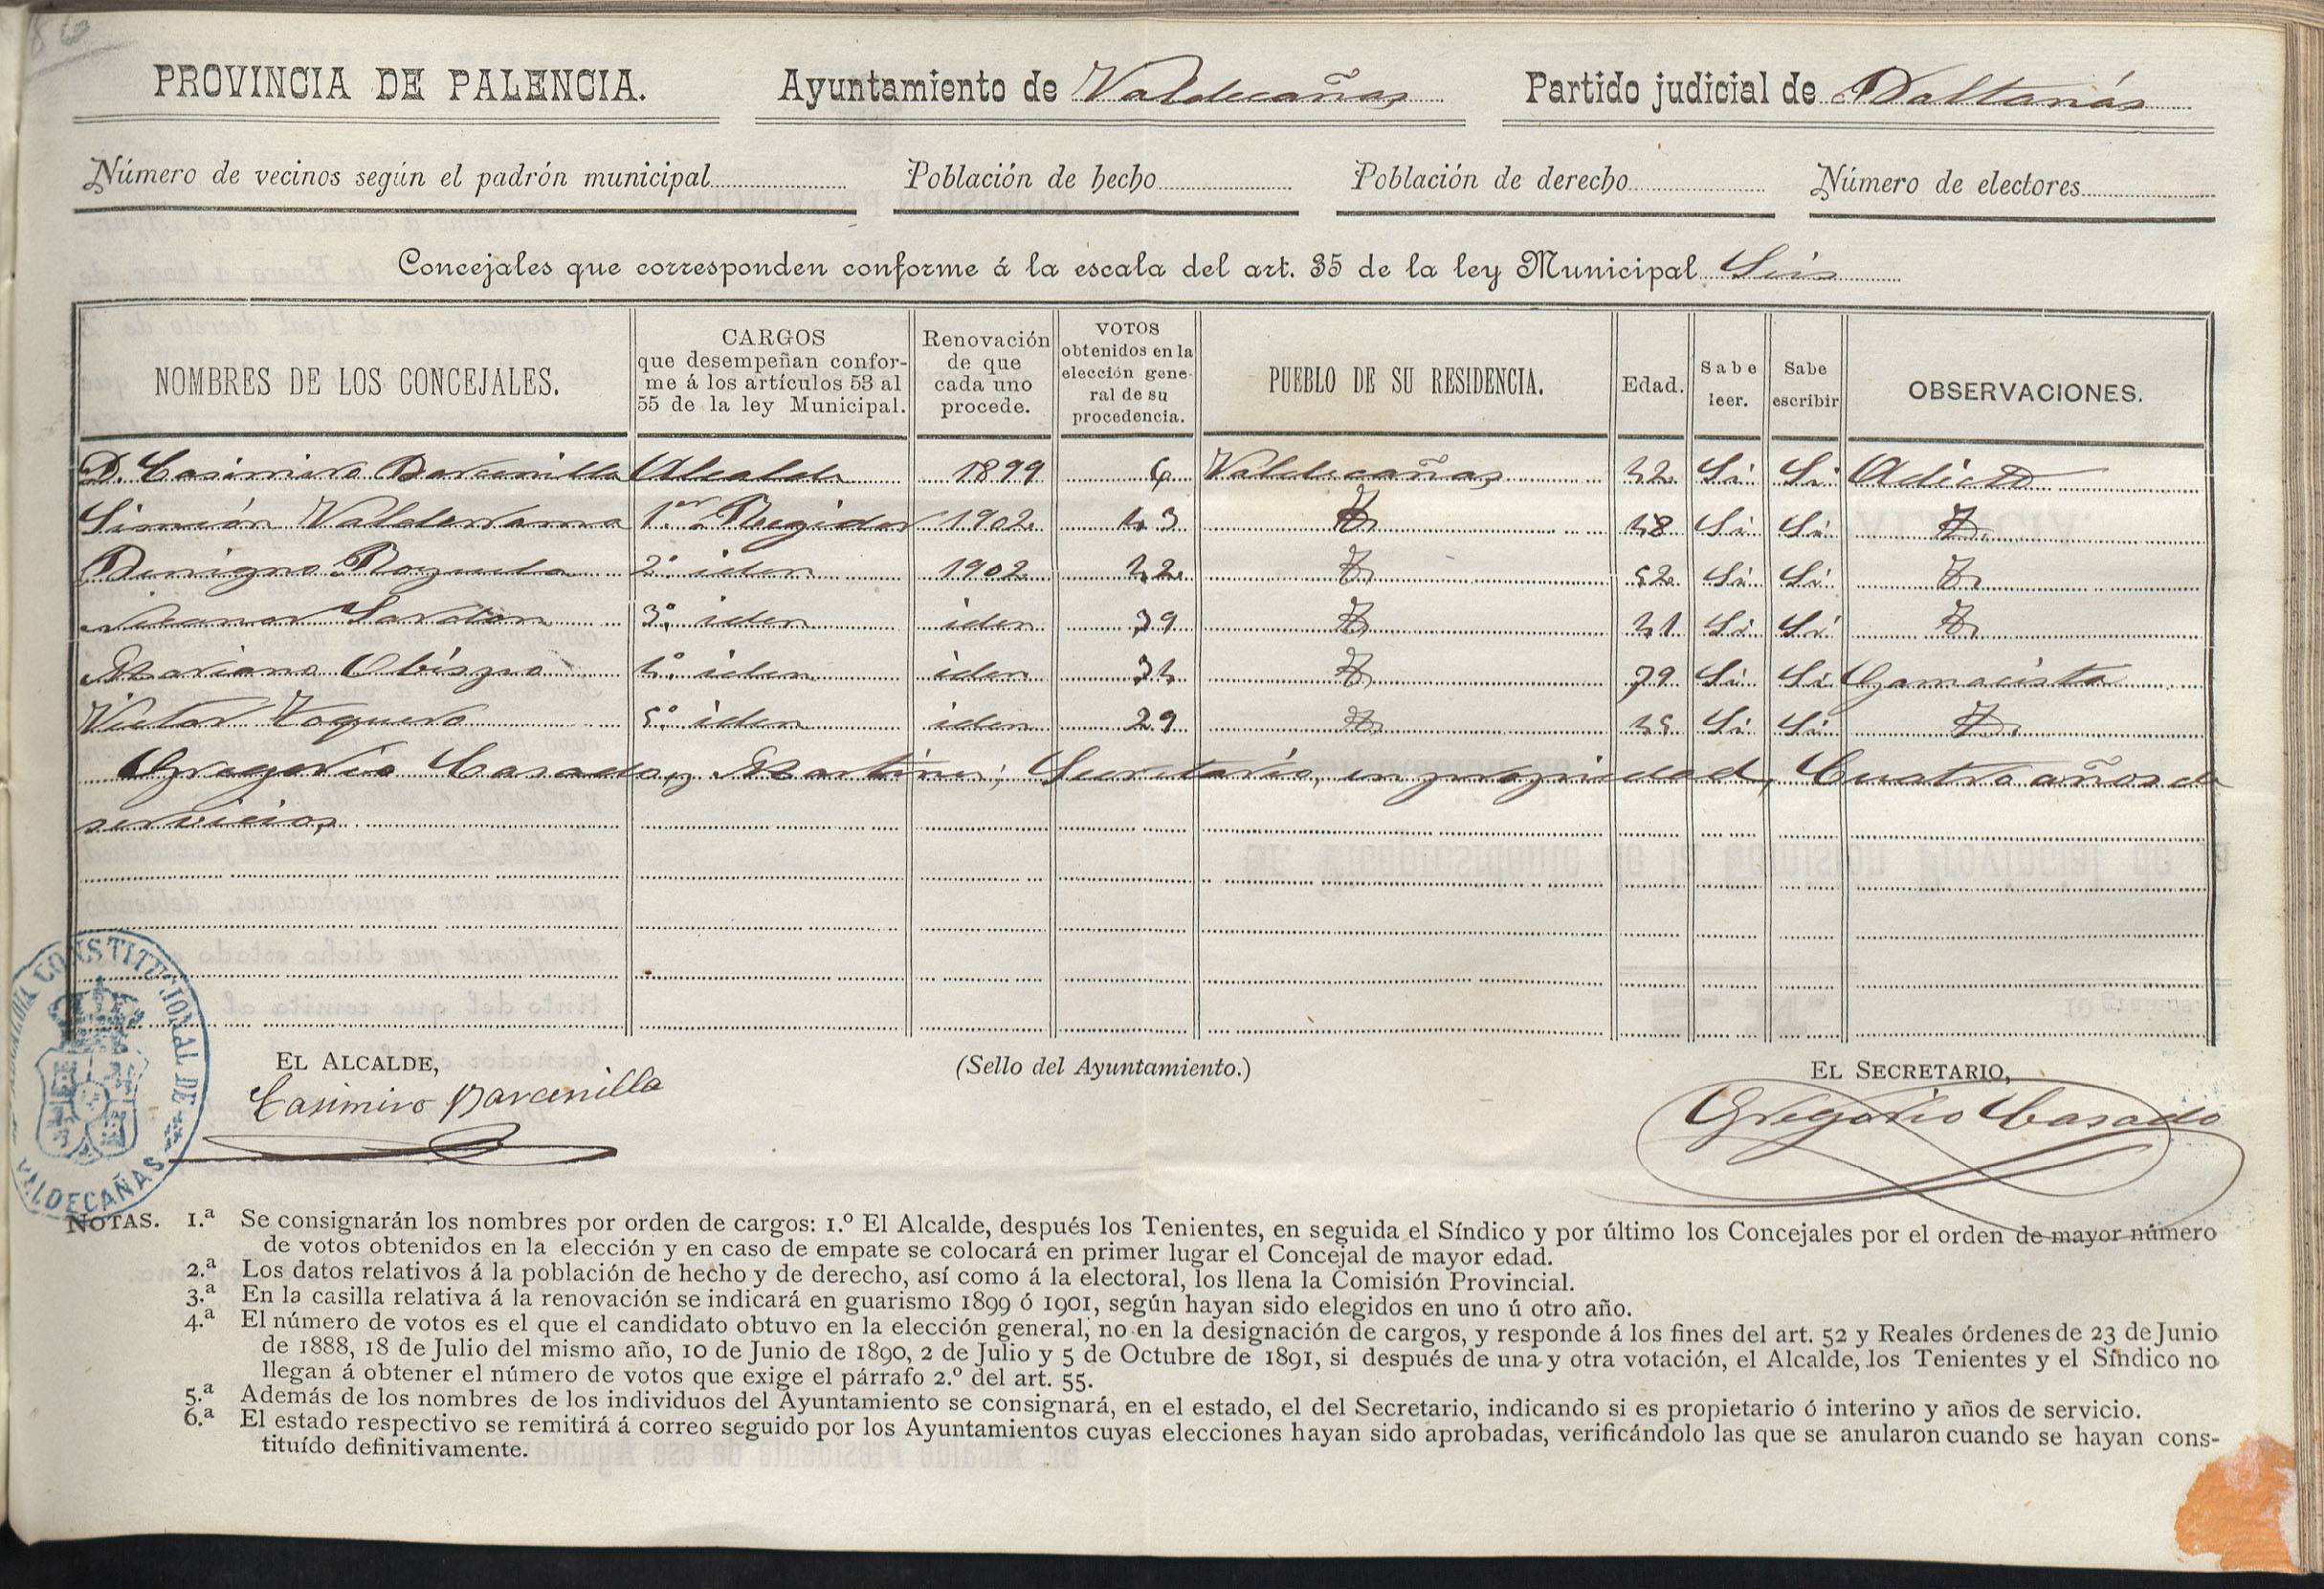 86
PROVINCIA DE PALENCIA. Ayuntamiento de Valdecañas Partido judicial de Baltanás
Número de vecinos según el padrón municipal Población de hecho Población de derecho Número de electores
Concejales que corresponden conforme á la escala del art. 35 de la ley Municipal Seis
NOMBRES DE LOS CONCEJALES. CARGOS que desempeñan conforme á los artículos 53 al 55 de la ley Municipal. Renovación de que cada uno procede. VOTOS obtenidos en la elección general de su procedencia. PUEBLO DE SU RESIDENCIA. Edad. Sabe leer. Sabe escribir OBSERVACIONES.
D. Casimiro Barcenilla Alcalde 1899 6 Valdecañas 42 Si Si Adicto
Simeón Valderrama 1.er Regidor 1902 43 48 Si Si
Benigno 2.º iden 1902 42 52 Si Si
Nicanor Sardon 3.º iden iden 39 41 Si Si
Mariano Obispo 4.º iden iden 34 39 Si Si Gamacista
Victor Vaquero 5.º iden iden 29 45 Si Si
Gregorio Casado, y Martinez, Secretario, en propiedad, Cuatro años de
servicio,
ALCALDIA CONSTITUCIONAL DE VALDECAÑAS
EL ALCALDE, (Sello del Ayuntamiento.) EL SECRETARIO,
Casimiro Barcenilla Gregorio Casado
NOTAS. 1.ª Se consignarán los nombres por orden de cargos: 1.º El Alcalde, después los Tenientes, en seguida el Síndico y por último los Concejales por el orden de mayor número
de votos obtenidos en la elección y en caso de empate se colocará en primer lugar el Concejal de mayor edad.
2.ª Los datos relativos á la población de hecho y de derecho, así como á la electoral, los llena la Comisión Provincial.
3.ª En la casilla relativa á la renovación se indicará en guarismo 1899 ó 1901, según hayan sido elegidos en uno ú otro año.
4.ª El número de votos es el que el candidato obtuvo en la elección general, no en la designación de cargos, y responde á los fines del art. 52 y Reales órdenes de 23 de Junio
de 1888, 18 de Julio del mismo año, 10 de Junio de 1890, 2 de Julio y 5 de Octubre de 1891, si después de una y otra votación, el Alcalde, los Tenientes y el Síndico no
llegan á obtener el número de votos que exige el párrafo 2.º del art. 55.
5.ª Además de los nombres de los individuos del Ayuntamiento se consignará, en el estado, el del Secretario, indicando si es propietario ó interino y años de servicio.
6.ª El estado respectivo se remitirá á correo seguido por los Ayuntamientos cuyas elecciones hayan sido aprobadas, verificándolo las que se anularon cuando se hayan cons-
tituído definitivamente.